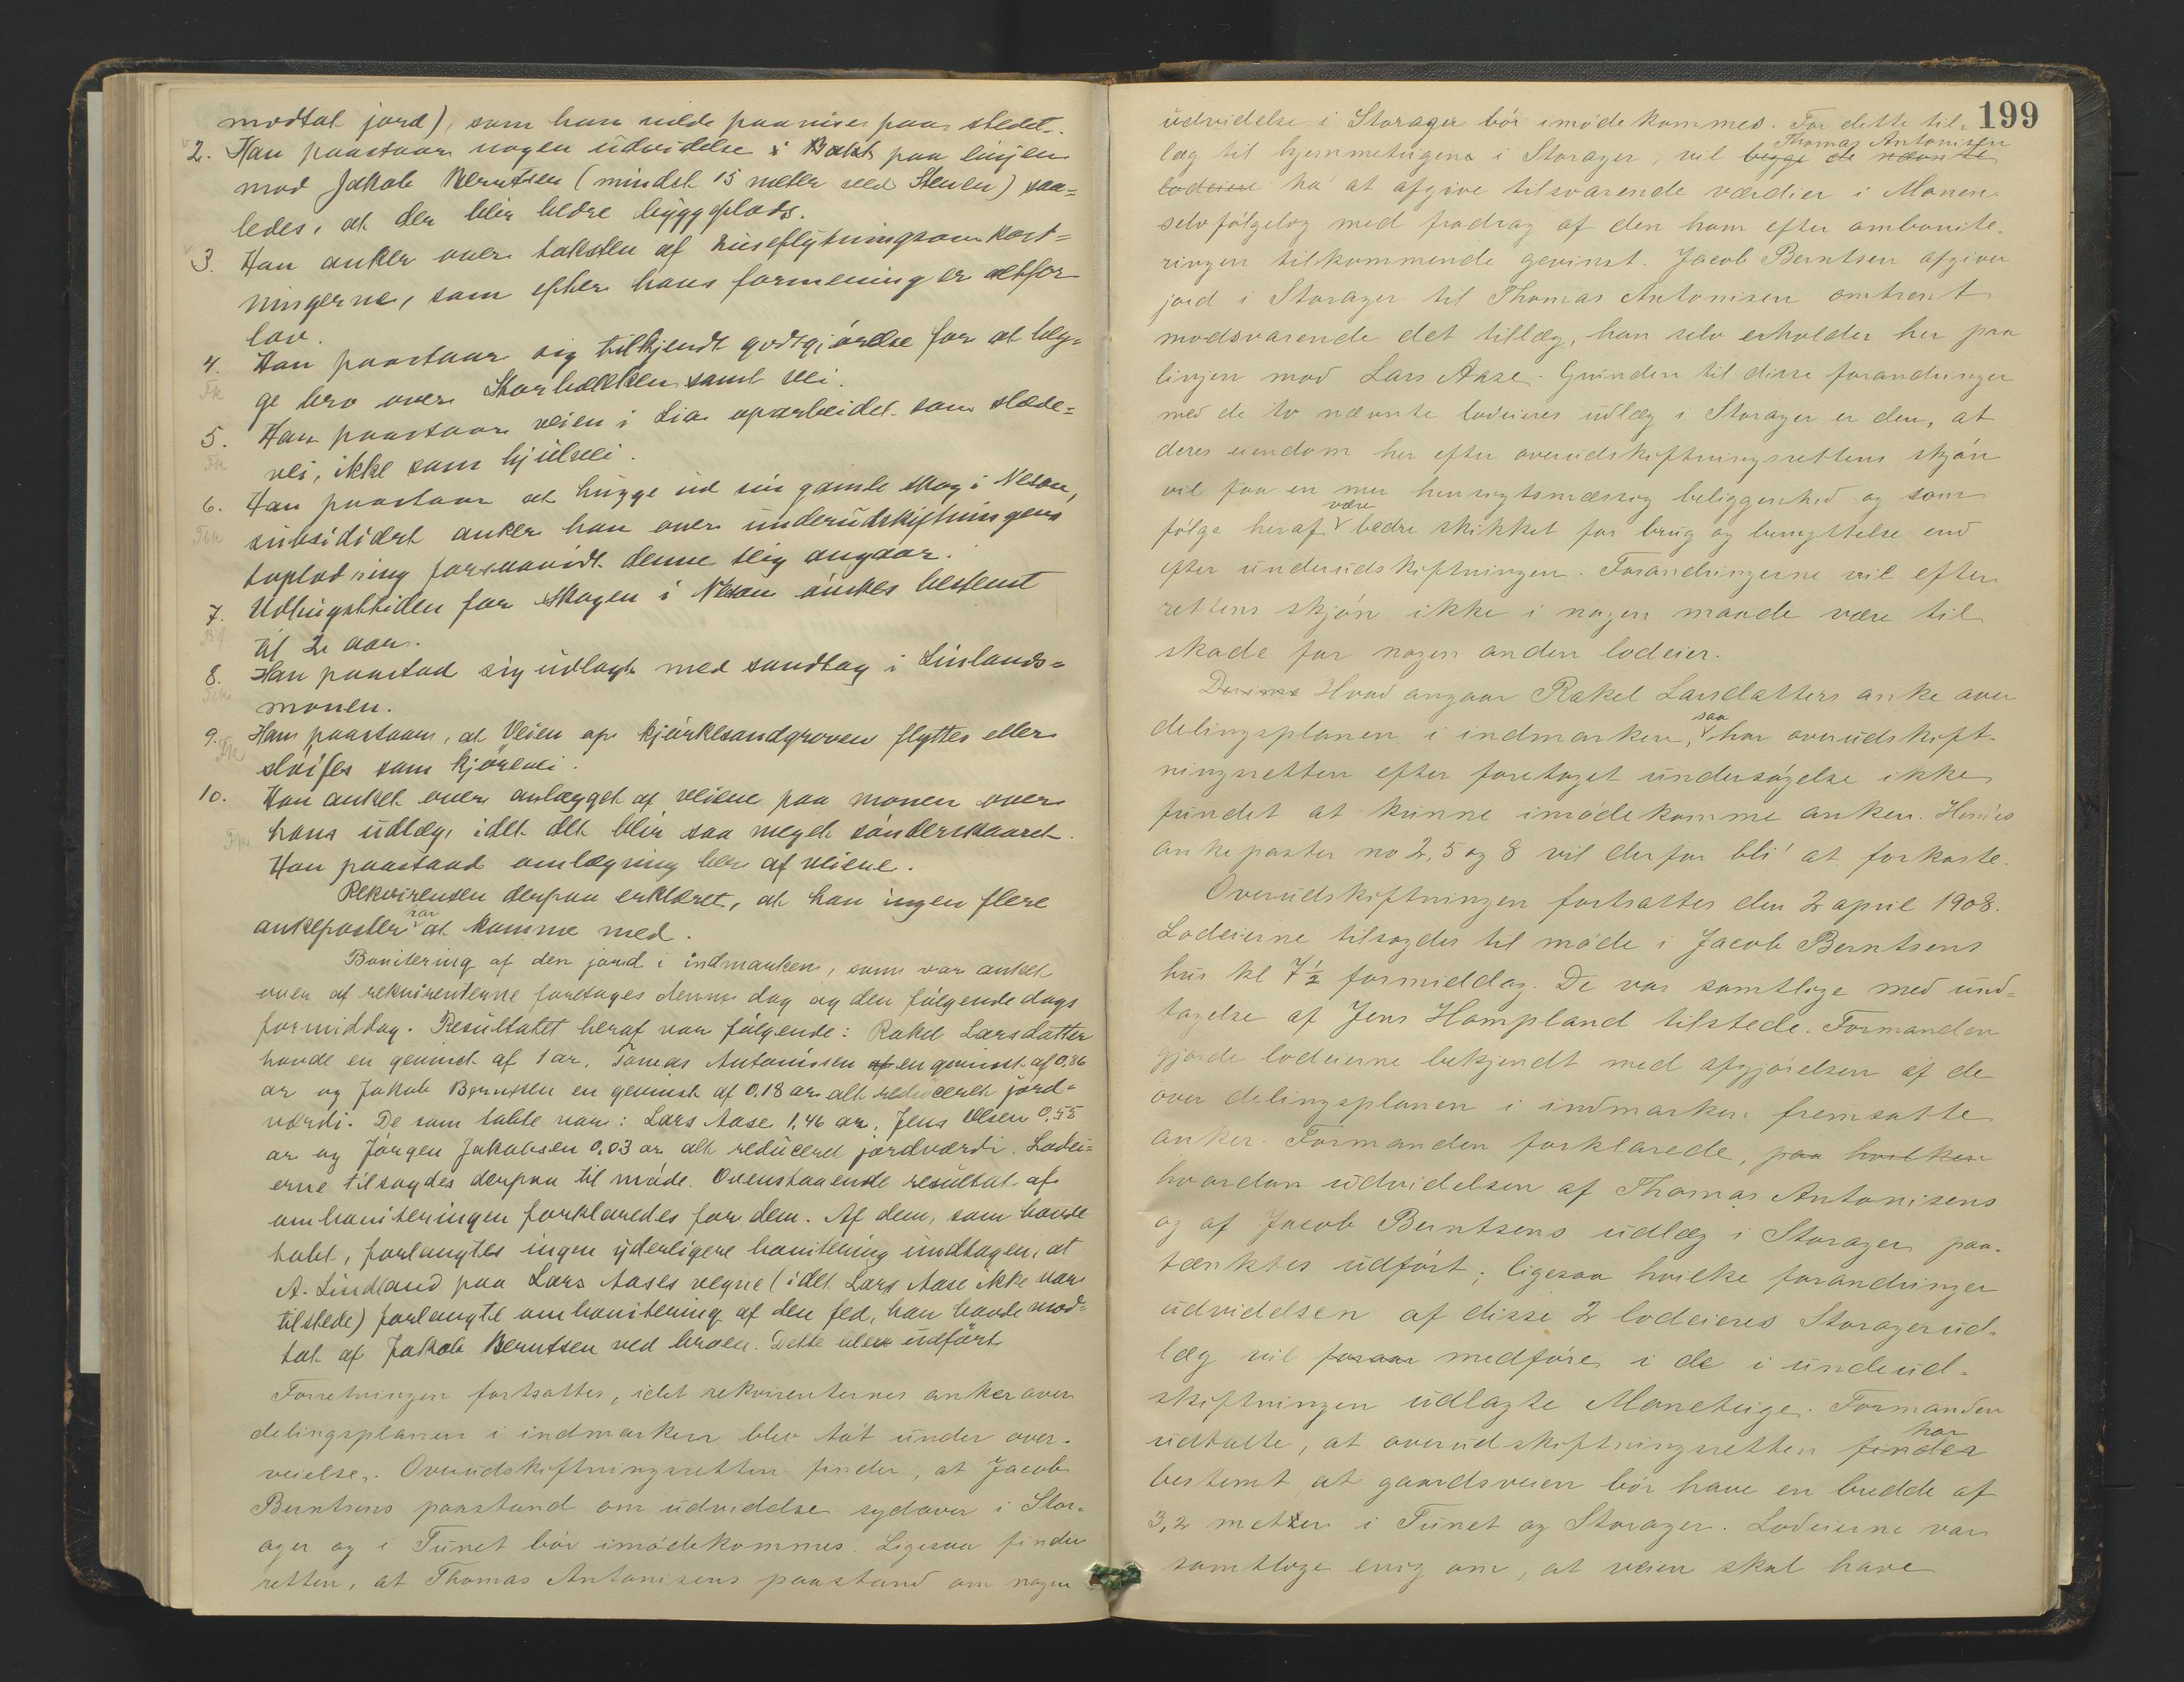 modtat jord), som han vilde paavise paa stedet.
2. Han paastaar nogen udvidelse i Bakk paa linjen
mod Jakob Berntsen (mindst 15 meter ved Stenen) saa=
ledes, at der blir bedre byggeplads.
3. Han anker over taksten af huseflytningsomkost=
ningerne, som efter hans formening er altfor
lav.
4. Han paastaar sig tilkjendt godtgjørelse for at læg=
Fk ge bro over Storbækken samt vei.
5. Han paastaar veien i Lia oparbeidet som slæde=
Fk vei, ikke som hjulvei.
6. Han paastaar at hugge ud sin gamle skog i Nesan,
Fsk subsidiært anker han over underudskiftningens
taplodning forsaavidt denne teig angaar.
7. Udhugsttiden for skogen i Nesan ønskes bestemt
Bf til 2 aar.
8. Han paastod sig udlagt med sandtag i Linlands=
Fsk monen.
9. Han paastaar, at Veien op kjørklesandgroven flyttes eller
Fk sløifes som kjørevei.
10. Han anket over anlægget af veiene paa monen over
Fk hans udlæg, idet det blir saa meget sønderskaaret.
Han paastaad omlægning her af veiene.
Rekvirenten derpaa erklæret, at han ingen flere
ankeposter har at komme med.
Bonitering af den jord i indmarken, som var anket
over af rekvirenterne foretages denne dag og den følgende dags
formiddag. Resultatet heraf var følgende: Rakel Larsdatter
havde en gevinst af 1 ar, Tomas Antonissen af en gevinst af 0,86
ar og Jakob Berntsen en gevinst af 0.18 ar alt reduceret jord=
værdi. De som tabte var: Lars Aase 1,46 ar, Jens Olsen 0,55
ar og Jørgen Jakobsen 0,03 ar alt reduceret jordværdi. Lodei=
erne tilsagdes derpaa til møde. Ovenstaaende resultat af
omboniteringen forklaredes for dem. Af dem, som havde
tabt, forlangtes ingen yderligere bonitering undtagen, at
A. Lindland paa Lars Aases vegne (idet Lars Aase ikke var
tilstede) forlangte ombonitering af den fed, han havde mod=
tat af Jakob Berntsen ved broen. Dette blev udført.
Forretningen fortsattes, idet rekvirenternes anker over
delingsplanen i indmarken blev tat under over-
veielse. Overudskiftningsretten finder, at Jacob
Berntsens paastand om udvidelse sydover i Stor-
ager og i Tunet bør imødekommes. Ligesaa finder
retten, at Thomas Antonisens paastand om nogen
199
udvidelse i Storager bør imødekommes. For dette til-
læg til hjemmeteigene i Storager, vil begge de nævnte Thomas Antonisen
lodeiere ha at afgive tilsvarende værdier i Monen
selvfølgelig med fradrag af den ham efter ombonite-
ringen tilkommende gevinst. Jacob Berntsen afgiver
jord i Storager til Thomas Antonisen omtrent
modsvarende det tillæg, han selv erholder her paa
linjen mod Lars Aase. Grunden til disse forandringer
med de to nævnte lodeieres udlæg i Storager er den, at
deres eiendom her efter overudskiftningsrettens skjøn
vil faa en mer hensigtsmæssig beliggenhed og som
følge heraf være bedre skikket for brug og benyttelse end
efter underudskiftningen. Forandringerne vil efter
rettens skjøn ikke i nogen maade være til
skade for nogen anden lodeier.
Hvad angaar Rakel Larsdatters anke over
delingsplanen i indmarken, saa har overudskift-
ningsretten efter foretaget undersøgelse ikke
fundet at kunne imødekomme anken. Hendes
ankeposter no 2, 5 og 8 vil derfor bli at forkaste.
Overudskiftningen fortsattes den 2 april 1908.
Lodeierne tilsagdes til møde i Jacob Berntsens
hus kl 7½ formiddag. De var samtlige med und=
tagelse af Jens Hampland tilstede. Formanden
gjorde lodeierne bekjendt med afgjørelsen af de
over delingsplanen i indmarken fremsatte
anker. Formanden forklarede, paa hvilken
hvordan udvidelsen af Thomas Antonisens
og af Jacob Berntsens udlæg i Storager paa-
tænktes udført; ligesaa hvilke forandringer
udvidelsen af disse 2 lodeieres Storagerud-
læg vil medføre i de i underud-
skiftningen udlagte Moneteige. Formanden
udtalte, at overudskiftningsretten finder har
bestemt at gaardsveien bør have en bredde af
3,2 meter i Tunet og Storager. Lodeierne var
samtlige enig om, at veien skal have